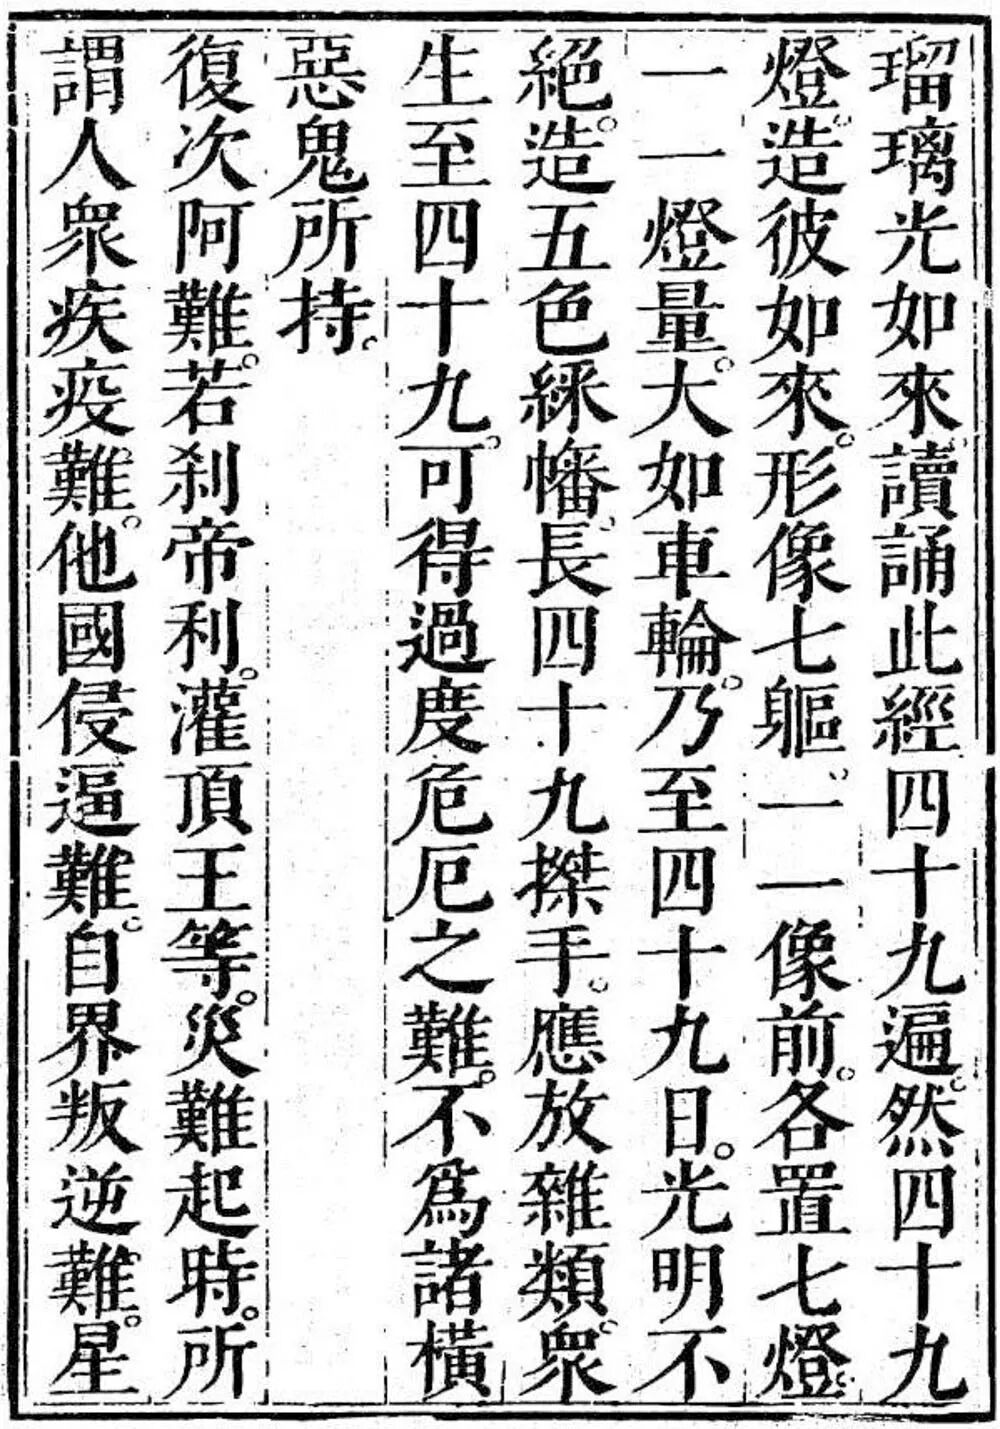 瑠璃光如來。讀誦此經四十九遍。然四十九
燈。造彼如來。形像七軀。一一像前。各置七燈。
一一燈量。大如車輪。乃至四十九日。光明不
絕。造五色綵幡。長四十九搩手。應放雜類。衆
生至四十九。可得過度危厄之難。不爲諸橫
惡鬼所持。
復次阿難。若刹帝利。灌頂王等。災難起時。所
謂人衆疾疫難。他國侵逼難。自界叛逆難。星